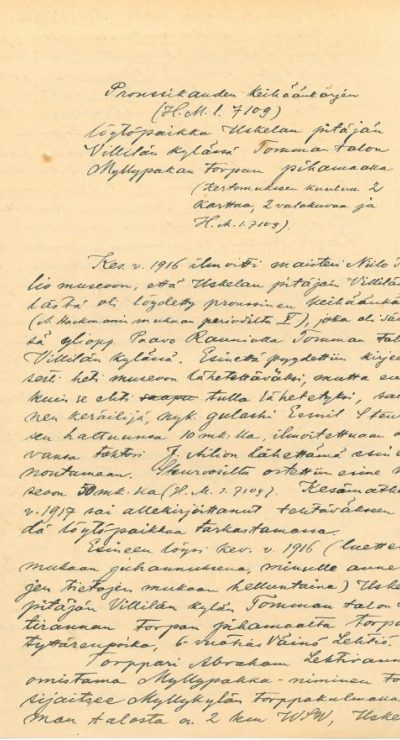 Pronssikauden keihäänkärjen
(H.M.l. 7109)
löytöpaikka Uskelan pitäjän
Villilän kylässä Tomman talon
Myllypakan torpan pihamaalla
(Kertomukseen kuuluu 2
karttaa, 2 valokuvaa ja
H.M.l. 7109).
Kes. v. 1916 ilmoitti maisteri Niilo
museoon, että Uskelan pitäjän Villilän
oli löydetty pronssinen keihäänkä
(A. Hackmanin mukaan periodilta V), joka oli
sä yliopp. Paavo Rauniolla Tomman tal
Villilän kylässä. Esinettä pyydettiin kirjee
sesti heti museoon lähetettäväksi, mutta en
kuin se ehti saapu tulla lähetetyksi, sa
nen keräilijä, nyk. gulashi Eemil
sen haltuunsa 10 mk:lla, ilmoitettuaan
vansa tohtori J. Ailion lähettämä esine
noutamaan. ostettiin esine
seoon 50 mk:lla (H.M.l. 7109). Kesämatk
v. 1917 sai allekirjoittanut tehtäväkseen
dä löytöpaikkaa tarkastamassa.
Esineen löysi kev. v. 1916 (luette
mukaan juhannuksena, minulle anne
jen tietojen mukaan helluntaina) Uske
pitäjän Villilän kylän Tomman talon
tirannan torpan pihamaalta torpa
tyttärenpoika, 6-vuotias Väinö Lehtiö.
Torppari Abraham Lehtirann
omistama Myllypakka-niminen to
sijaitsee Myllykylän torppakulmalla
man talosta n. 2 km WSW, Uske